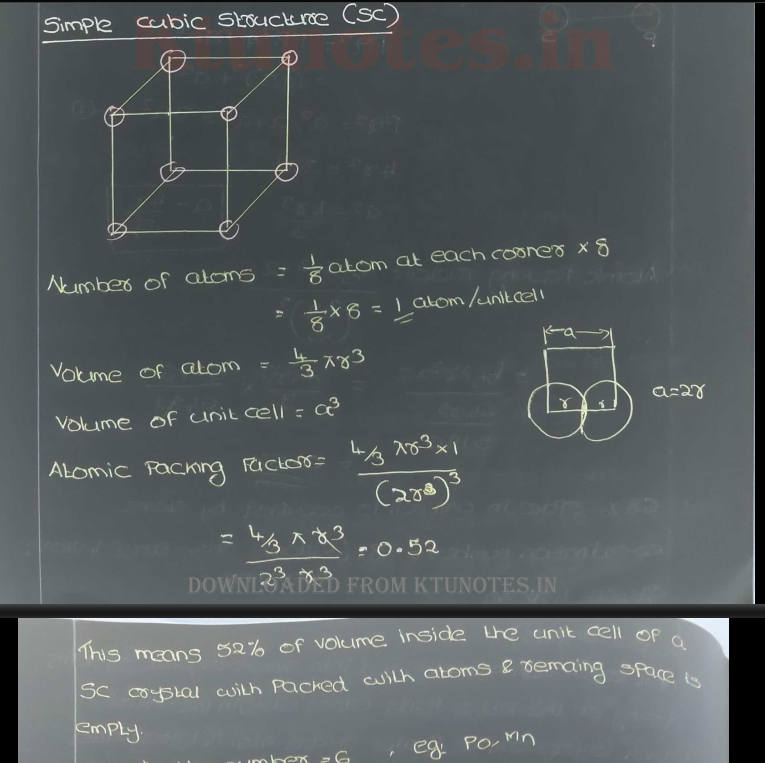 Simple cubic structure (SC)
Ktunotes.in
Number of atoms = 1/8 atom at each corner × 8
= 1/8 × 8 = 1 atom/unitcell
a
Volume of atom = 4/3 πr³
r r a=2r
Volume of unit cell = a³
Atomic Packing Factor = 4/3 πr³ × 1 / (2r)³
= 4/3 π r³ / 2³ r³ = 0.52
DOWNLOADED FROM KTUNOTES.IN
This means 52% of volume inside the unit cell of a
SC crystal with Packed with atoms & remaing space is
emply.
number = 6 , eg: Po, Mn